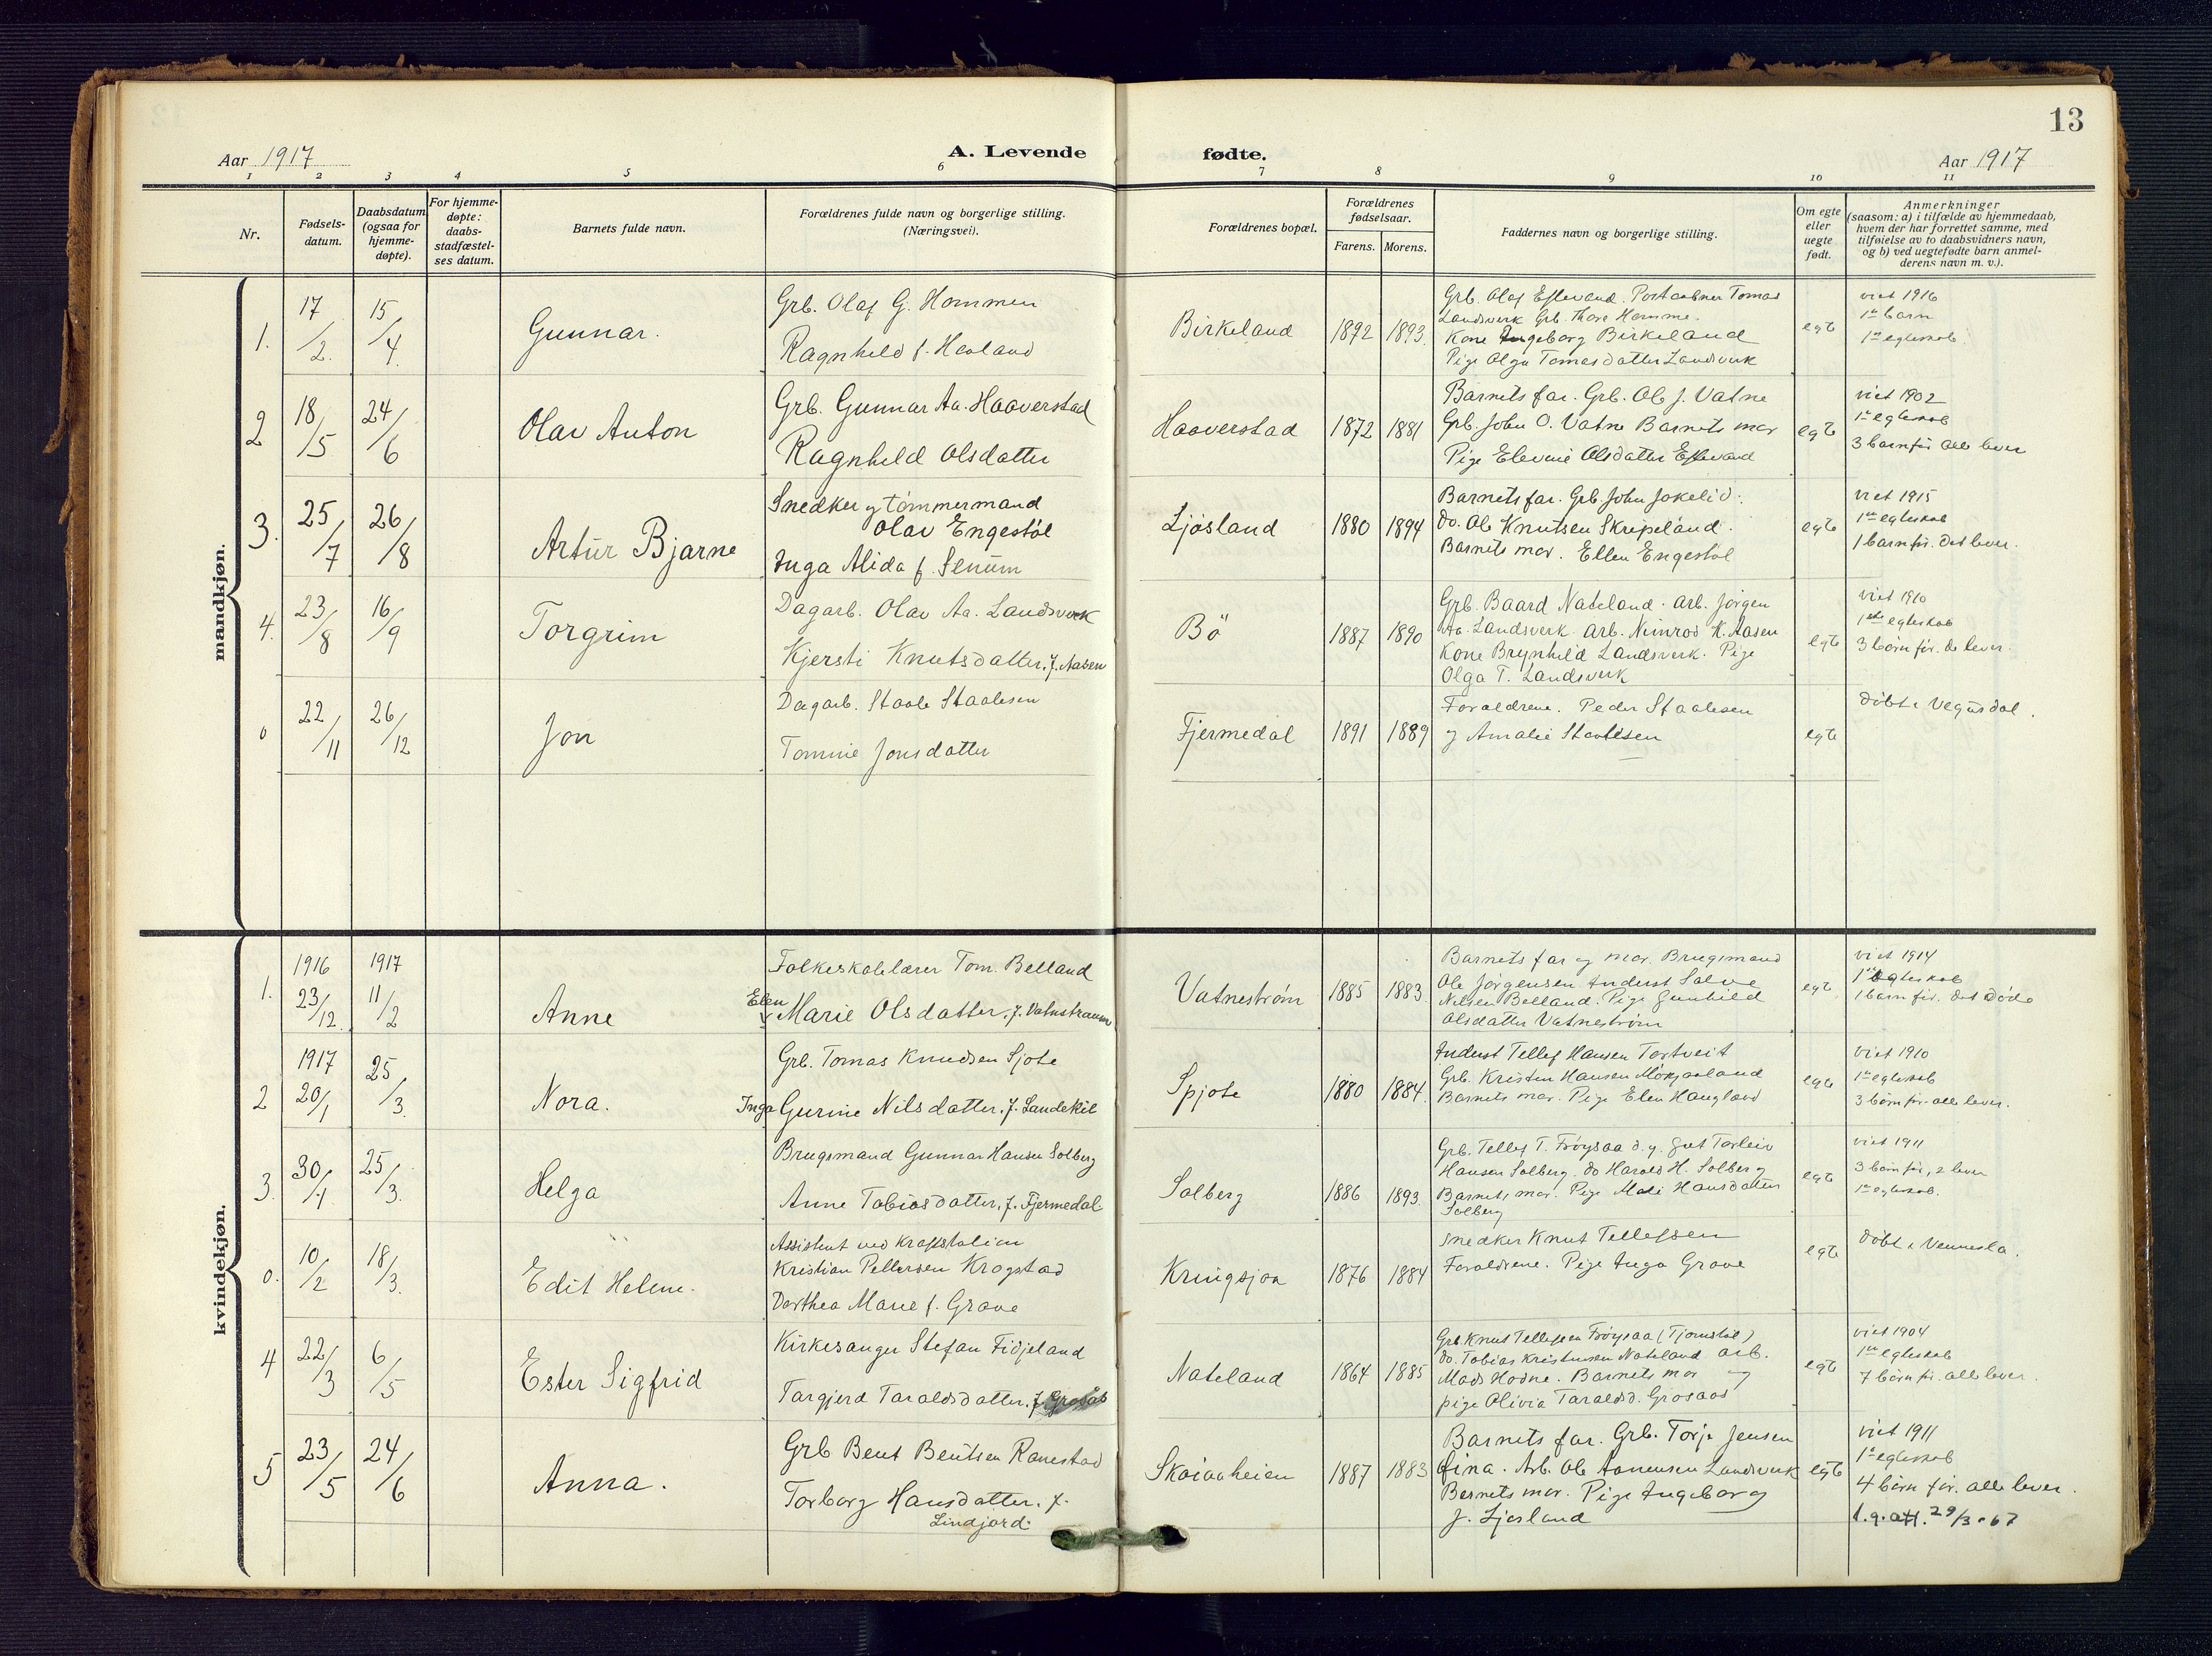 13
Aar 1917
A. Levende
fødte.
Aar 1917
1 2 3 4 5 6 7 8 9 10 11
Nr.
Fødsels-
datum.
Daabsdatum
(ogsaa for
hjemme-
døpte).
For hjemme-
døpte:
daabs-
stadfæstel-
ses datum.
Barnets fulde navn.
Forældrenes fulde navn og borgerlige stilling.
(Næringsvei).
Forældrenes bopæl.
Forældrenes
fødselsaar.
Farens. Morens.
Faddernes navn og borgerlige stilling.
Om egte
eller
uegte
født.
Anmerkninger
(saasom: a) i tilfælde av hjemmedaab,
hvem der har forrettet samme, med
tilføielse av to daabsvidners navn,
og b) ved uegtefødte barn anmel-
derens navn m. v.).
mandkjøn.
1.
17/2.
15/4.
Gunnar.
Grb. Olaf G. Hommen
Ragnhild f. Havland
Birkeland
1892 1893.
Grb. Olaf Eftevand. Postaabner Tomas
Landsverk Grb. Thore Homme.
Kone Ingeborg Birkeland
Pige Olga Tomasdatter Landsverk
egte
viet 1916
1ste barn
1ste egteskab.
2
18/5
24/6
Olav Anton
Grb. Gunnar Aa. Haaverstad
Ragnhild Olsdatter
Haaverstad
1872 1881
Barnets far. Grb. Ole J. Vatne
Grb. John O. Vatne Barnets mor
Pige Elevine Olsdatter Eftevand
egte
viet 1902
1ste egteskab
3 barn før alle lever
3.
25/7
26/8
Artur Bjarne
Snedker og tømmermand
Olav Engestøl
Inga Alida f. Senum
Ljøsland
1880 1894
Barnets far. Grb. John Jokelid.
do. Ole Knutsen Skripeland.
Barnets mor. Ellen Engestøl
egte
viet 1915
1ste egteskab
1 barn før. Det lever.
4.
23/8
16/9
Torgrim
Dagarb. Olav Aa. Landsverk
Kjersti Knutsdatter, f. Aasen
Bö
1887 1890
Grb. Baard Nateland. Arb. Jørgen
Aa. Landsverk Arb. Nimrod K. Aasen
Kone Brynhild Landsverk. Pige
Olga T. Landsverk
egte
viet 1910
1ste egteskab
3 børn før. de lever.
0
22/11
26/12
Jon
Dagarb. Staale Staalesen
Tomine Jonsdatter
Fjermedal
1891 1889
Forældrene. Peder Staalesen
og Amalie Staalesen
egte
Døbt i Vegusdal.
kvindekjøn.
1.
1916
23/12.
1917
11/2
Anne
Folkeskolelærer Tom. Belland
Elen
Marie Olsdatter, f. Vatnstraum
Vatnestrøm
1885 1883.
Barnets far og mor. Brugsmand
Ole Jørgensen Inderst Salve
Nilsen Belland. Pige Gunhild
Olsdatter Vatnestrøm
egte
viet 1914
1ste egteskab
1 barn før. det døde
2
1917
20/1
25/3.
Nora.
Grb. Tomas Knudsen Sjote
Inga Gurine Nilsdatter, f. Landekil
Spjote
1880 1884.
Inderst Tellef Hansen Tortveit
Grb. Kristen Hansen
Barnets mor. Pige Elen Haugland
egte
viet 1910
1ste egteskab
3 børn før. alle lever.
3.
30/1
25/3.
Helga
Brugsmand Gunnar Hansen Solberg
Anne Tobiasdatter, f. Fjermedal
Solberg
1886 1893.
Grb. Tellef T. Frøysaa d.y. Gut Torleiv
Hansen Solberg. do Harald H. Solberg
Barnets mor. Pige Mali Hansdatter
Solberg
egte
viet 1911
3 børn før, 2 lever
1ste egteskab.
0.
10/2
18/3.
Edit Helene.
Assistent ved kraftstation
Kristian Pettersen Krogstad
Dorthea Marie f. Grave
Kringsjaa
1876 1884
Snedker Knut Tellefsen
Forældrene. Pige Inga Grave
egte
Døbt i Vennesla.
4
22/3
6/5
Ester Sigfrid
Kirkesanger Stefan Fidjeland
Targjerd Taraldsdatter, f. Grosås
Nateland
1864 1885
Grb Knut Tellefsen Frøysaa (Tjomstøl)
do. Tobias Kristensen Nateland arb.
Mads Hodne. Barnets mor og
pige Olivia Taraldsd. Grosaas
egte
viet 1904
1ste egteskab
7 børn før. alle lever.
5
23/5
24/6
Anna.
Grb Bent Bentsen Ranestad
Torborg Hansdatter, f.
Lindjord.
Skaiaaheien
1887 1883
Barnets far. Grb. Torje Jensen
Fina. Arb. Ole Aanensen Landsverk
Barnets mor. Pige Ingeborg
J. Ljosland
egte
viet 1911
1ste egteskab
4 børn før. alle lever.
l.g. att. 29/3-67